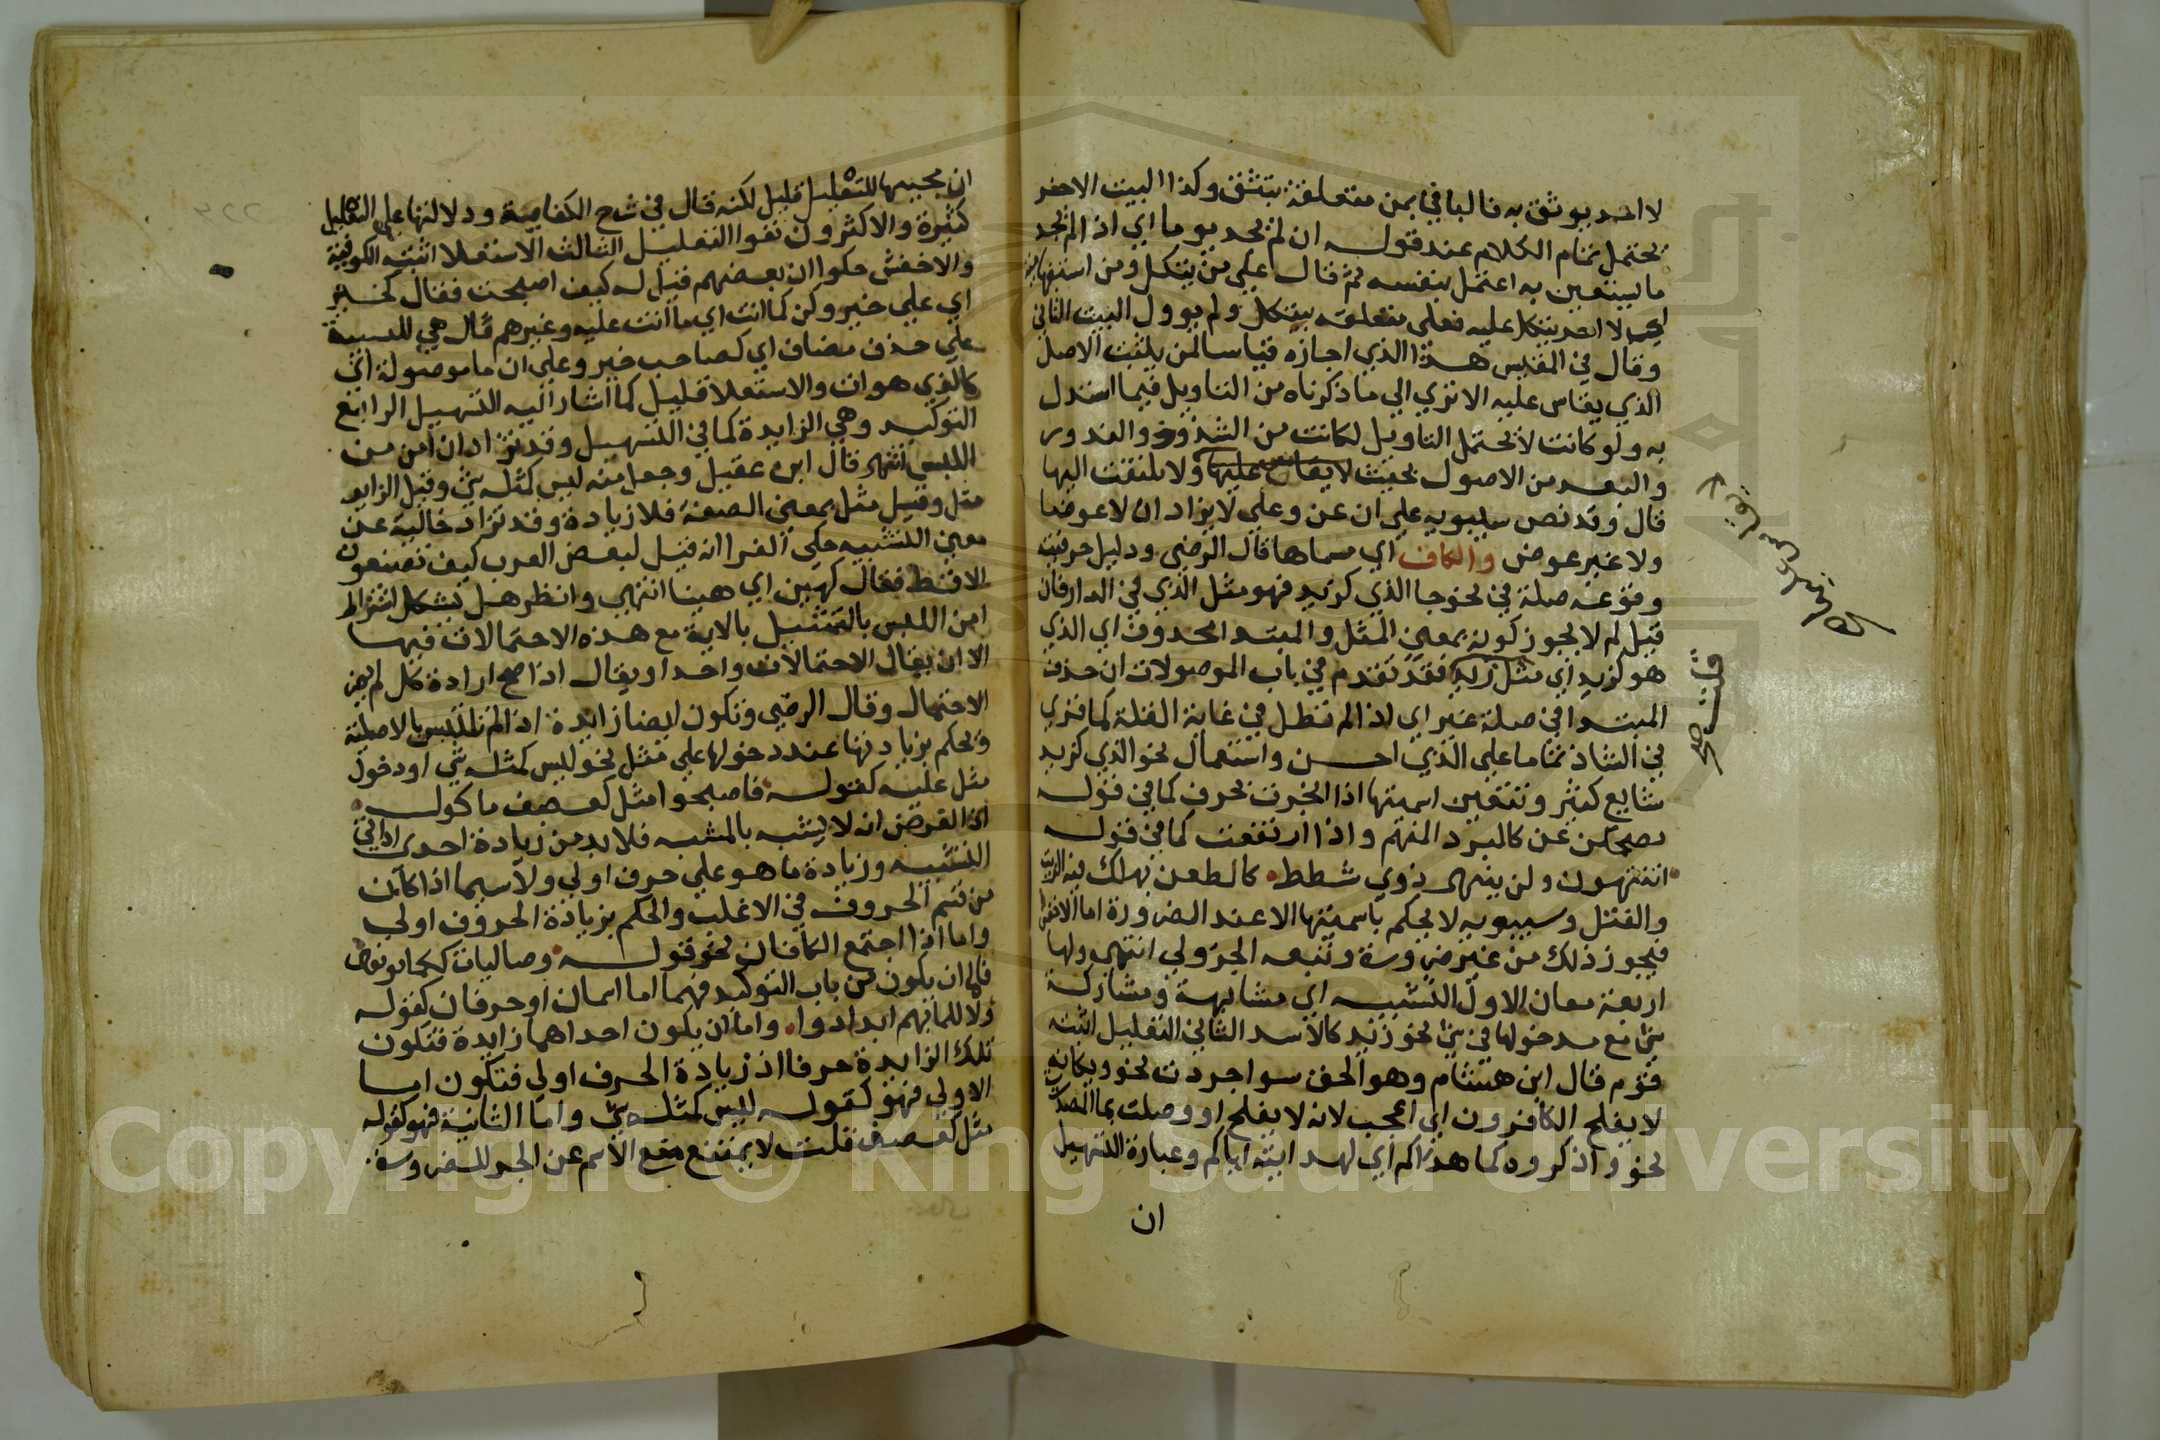 لا احد يوثق به فالبا في بمن متعلقة بتثق وكذا البيت الاخر
يحتمل تمام الكلام عند قوله ان لم يجد يوما اي اذا لم يجد
ما يستعين به اعتمل بنفسه ثم قال علي من يتكل ومن استفهامية
اي لا احد يتكل عليه فعلى متعلقة بيتكل ولم يوول البيت الثاني
وقال في المقبس هذا الذي اجازه قياسا لمن يلتفت الاصل
الذي يقاس عليه الا تري الي ما ذكرناه من التاويل فيما استدل
به ولو كانت لا تحتمل التاويل لكانت من الشذوذ والندور
والبعد من الاصول بحيث لا يقاس عليها ولا يلتفت اليها
قال وقد نص سيبويه علي ان عن وعلي لا يزادان لا عوضا
ولا غير عوض والكاف اي مسماها قال الرضي ودليل حرفيته
وقوعه صلة في نحو جا الذي كزيد فهو مثل الذي في الدار فان
قيل لم لا يجوز كونه بمعني المثل والمبتدا محذوف اي الذي
هو كزيد اي مثل زيد فقد تقدم في باب الموصولات ان حذف
المبتدا في صلة غير اي اذا لم تطل في غاية القلة كما قري
في الشاذ تماما علي الذي احسن واستعمال نحو الذي كزيد
شايع كثير وتتعين اسميتها اذا انجرت بحرف كما في قوله
يضحكن عن كالبرد المنهم واذا ارتفعت كما في قوله
اتنتهون ولن ينهى ذوي شطط كالطعن يهلك فيه الزيت
والفتل وسيبويه لا يحكم باسميتها الا عند الضرورة اما الاخفش
فيجوز ذلك من غير ضرورة وتبعه الجزولي انتهى ولها
اربعة معان الاول التشبيه اي مشابهة ومشاركة
شي مع مدخولها في شي نحو زيد كالاسد الثاني التعليل اثبته
قوم قال ابن هشام وهو الحق سوا جردت نحو ويكانه
لا يفلح الكافرون اي اعجب لانه لا يفلح او وصلت بما المصدرية
نحو واذكروه كما هداكم اي لهدايته اياكم وعبارة التسهيل
ان
ان مجييها للتعليل قليل لكنه قال في شرح الكافية ودلالتها علي التعليل
كثيرة والاكثرون نفوا التعليل الثالث الاستعلا اثبته الكوفية
والاخفش حكوا ان بعضهم قيل له كيف اصبحت فقال كخير
اي علي خير وكن كما انت اي ما انت عليه وغيرهم قال هي للتشبيه
علي حذف مضاف اي كصاحب خير وعلي ان ما موصولة اي
كالذي هو انت والاستعلا قليل كما اشار اليه التسهيل الرابع
التوكيد وهي الزايدة كما في التسهيل وقد تزاد ان امن من
اللبس انتهى قال ابن عقيل وجعل منه ليس كمثله شي وقيل الزايد
مثل وقيل مثل بمعني الصفة فلا زيادة وقد تزاد خالية عن
معني التشبيه حكي الفرا انه قيل لبعض العرب كيف تصنعون
الاقط فقال كهين اي هينا انتهي وانظر هل يشكل اشتراط
امن اللبس بالتمثيل بالاية مع هذه الاحتمالات فيها
الا ان يقال الاحتمالات واحد او يقال اذا صح ارادة كل لم يضر
الاحتمال وقال الرضي وتكون ايضا زايدة اذا لم تلتبس بالاصلية
ويحكم بزيادتها عند دخولها علي مثل نحو ليس كمثله شي او دخول
مثل عليه كقوله فاصبحوا مثل كعصف ماكول
اذ الغرض انه لا يشبه بالمشبه فلا بد من زيادة احدى اداتي
التشبيه وزيادة ما هو علي حرف اولي ولا سيما اذا كان
من قسم الحروف في الاغلب والحكم بزيادة الحروف اولي
واما اذا اجتمع الكافان نحو قوله وصاليات ككما يوثفين
فاما ان يكون من باب التوكيد فهما اما اسمان او حرفان كقوله
ولا للما بهم ابدا دوا واما ان يكون احداهما زايدة فتكون
تلك الزايدة حرفا اذ زيادة الحرف اولي فتكون اما
الاولي فهو كقوله ليس كمثله شي واما الثانية فهو كقوله
مثل كعصف قلت لا يمتنع منع الاسم عن الجر للضرورة